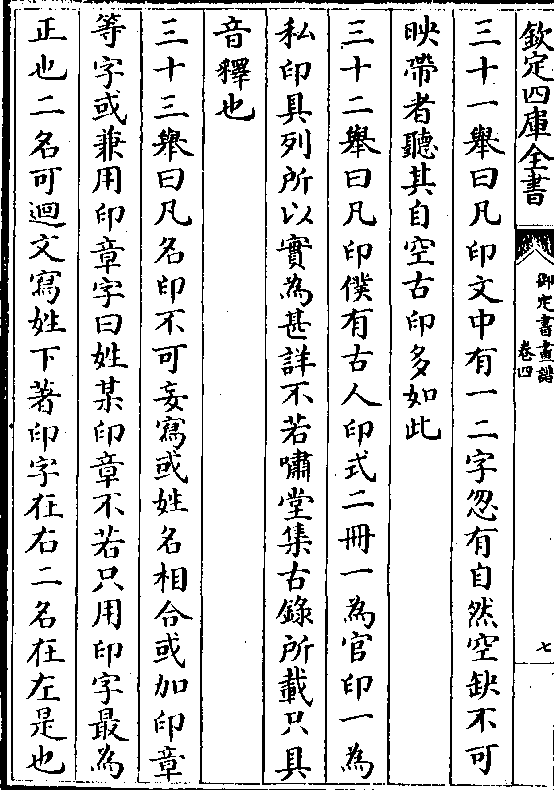 欽定四庫全書
御定書畫譜
卷四
七
三十一舉曰凡印文中有一二字忽有自然空缺不可
映帶者聽其自空古印多如此
三十二舉曰凡印僕有古人印式二冊一為官印一為
私印具列所以實為甚詳不若嘯堂集古錄所載只具
音釋也
三十三舉曰凡名印不可妄寫或姓名相合或加印章
等字或兼用印章字曰姓某印章不若只用印字最為
正也二名可迴文寫姓下著印字在右二名在左是也